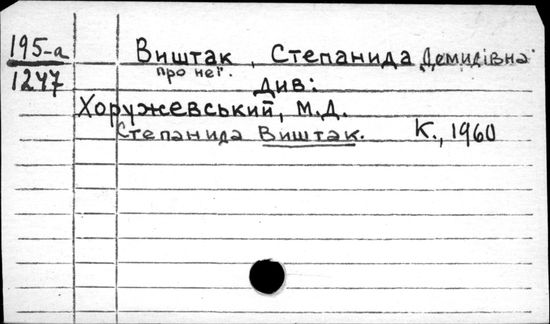 195-а Виштак, Степанида Демидівна
1247 про неї.
Див:
Хоружевський, М.Д.
Степанида Виштак. К., 1960